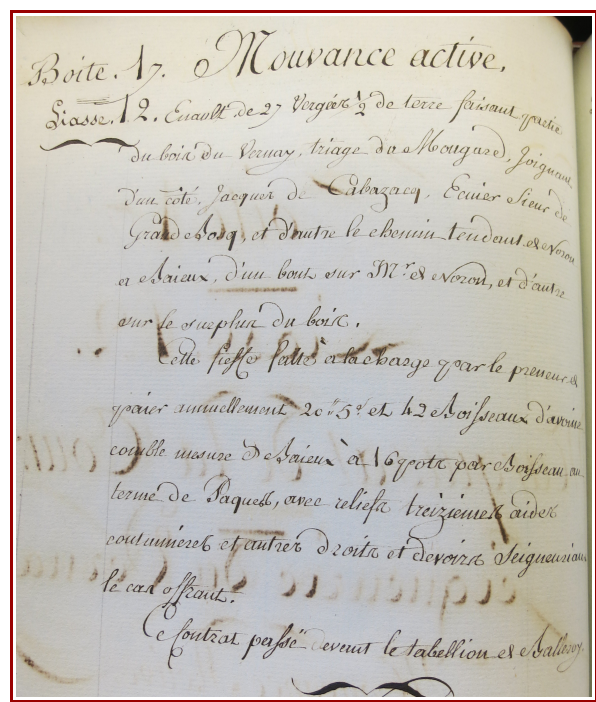 Boite. 17. Mouvance active.
Liasse. 12. Enault de 27 Vergées ½ de terre faisant partie
du bois du Vernay, triage du Mougard, Joignant
d'un côté, Jacques de Cabazacq, Ecuier Sieur de
Grand Bosq, et d'autre le chemin tendant de Noron
a Baieux, d'un bout sur Mr de Noron, et d'autre
sur le surplus du bois.
Cette fieffe faitte à la charge par le preneur de
paier annuellement 20ˢ 5ᵈ et 42 Boisseaux d'avoine
comble mesure De Baieux à 16 pots par Boisseau au
terme de Paques, avec reliefs treiziemes aides
coutumieres et autres droits et devoirs Seigneuriaux
le cas offrant.
Ce Contrat passé devant le tabellion de Balleroy,